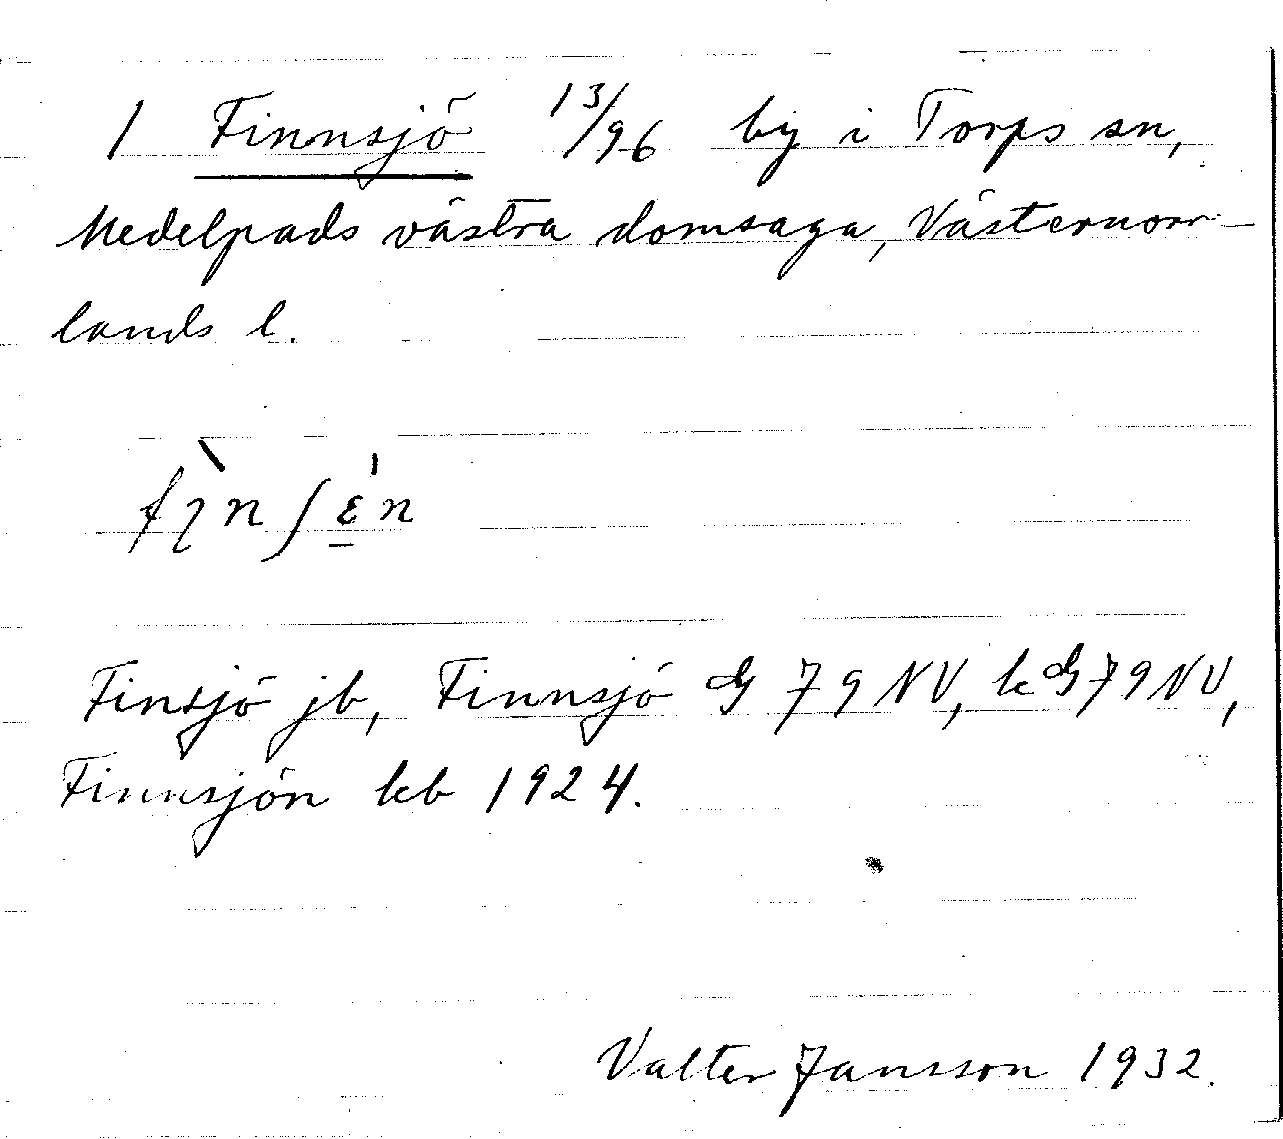 1 Finnsjö 13/96 by i Torps sn,
Medelpads västra domsaga, Västernorr-
lands l.
Finsjö jb, Finnsjö G 79 NV, kG 79 NV,
Finnsjön kb 1924.
Valter Jansson 1932.